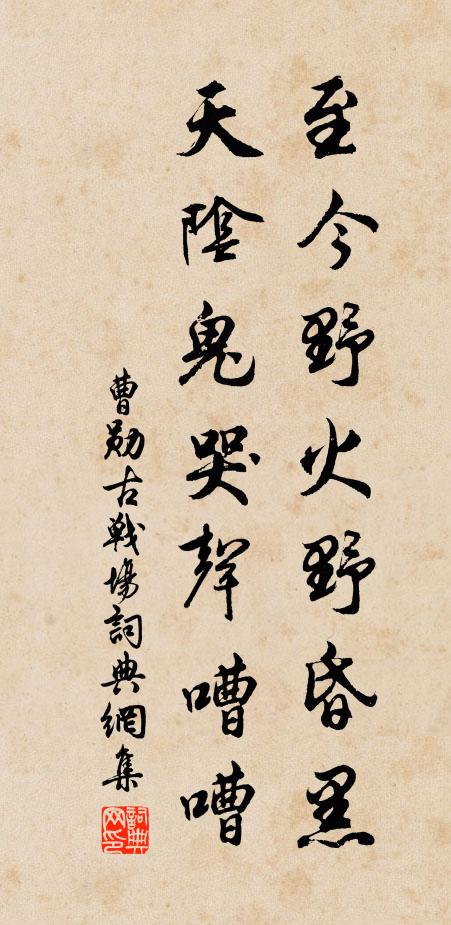 至今野火野昏黑
天陰鬼哭聲嘈嘈
曹勛古戰場詞典網集
詞典网印